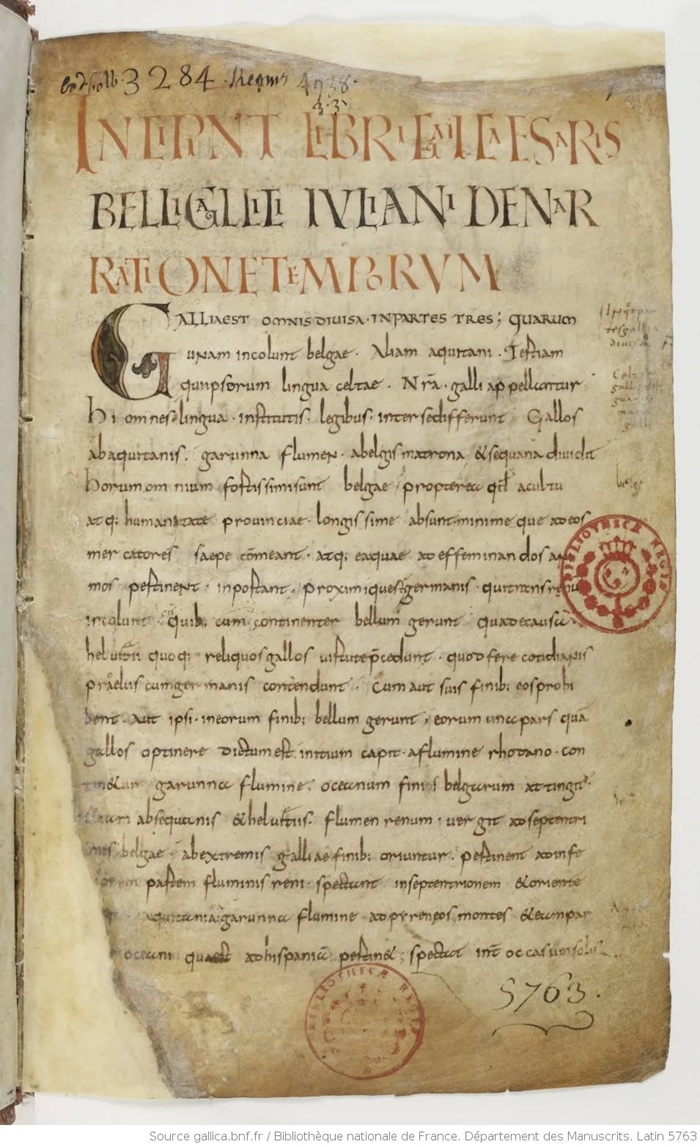 cod. colb. 3284. Regius 4738.
3.3.
INCIPIUNT LIBRI GAII CAESARIS
BELLI GALLICI IULIANI DE NAR
RATIONE TEMPORUM
GALLIA EST OMNIS DIVISA · IN PARTES TRES; QUARUM
unam incolunt belgae · Aliam aquitani · Tertiam
qui ipsorum lingua celtae · Nra · galli appellantur
hi omnes lingua · institutis · legibus · inter se differunt Gallos
ab aquitanis · garunna flumen · a belgis matrona & sequana dividit
horum omnium fortissimi sunt belgae propterea qd a cultu
atq; humanitate provinciae · longissime absunt minime que ad eos
mercatores saepe cōmeant · atq; ea quae ad effeminandos ani
mos pertinent · inportant · proximi que s̄ germanis · qui trans renū
incolunt · Quib; cum continenter bellum gerunt · qua de causa
helvetii quoq; reliquos gallos virtute p̄cedunt · quod fere cotidianis
praeliis cum germanis contendunt · Cum aut suis finib; eos prohi
bent · Aut ipsi · in eorum finib; bellum gerunt; eorum una pars quā
gallos optinere dictum est · initium capit · a flumine rhodano · con
tin&ur garunna flumine; oceanum finis belgarum attingit ·
&iam ab sequanis & helvetiis · flumen renum · vergit ad septentri
ones belgae · ab extremis galliae finib; oriuntur · pertinent ad infe
riorem partem fluminis reni · spectant in septentrionem & oriente
aquitania a garunna flumine ad pyreneos montes & eam par
oceani quae est ad hispaniā pertin&; spectat int̄ occasum solis
5763.
BIBLIOTHECA REGIA
BIBLIOTHECA REGIA
Source gallica.bnf.fr / Bibliothèque nationale de France. Département des Manuscrits. Latin 5763